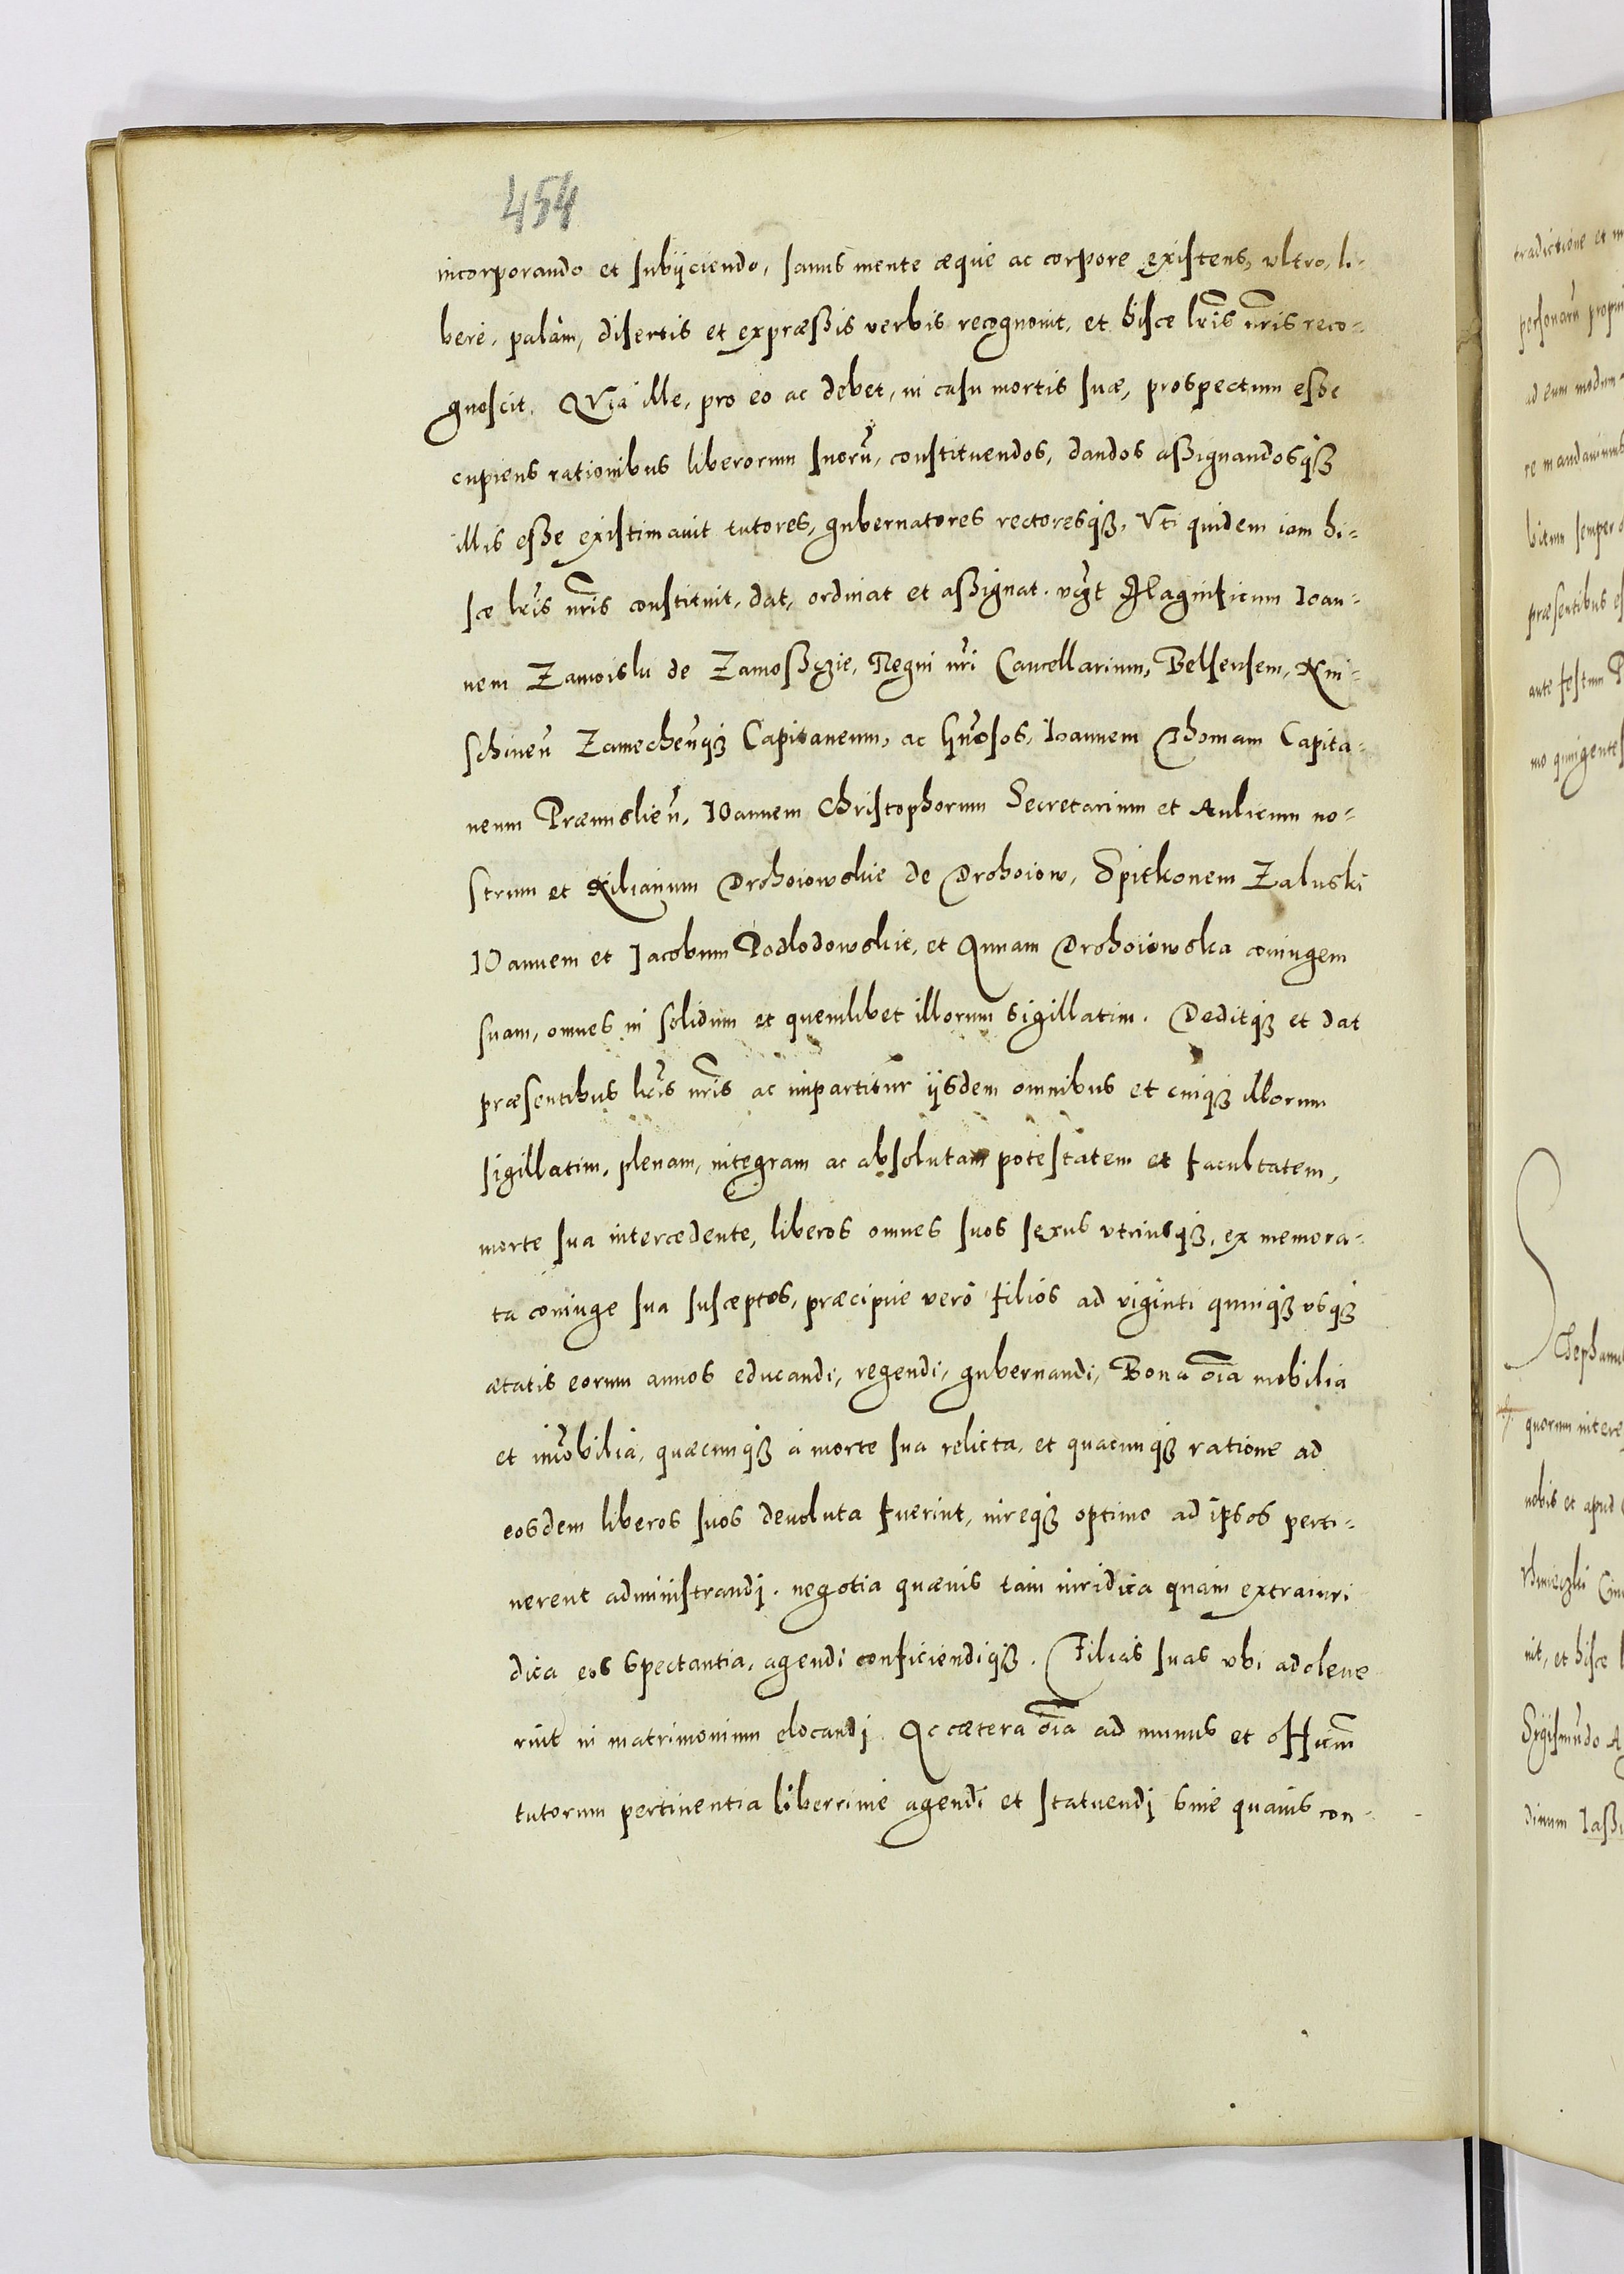 454
incorporando et subijciendo, sanus mente æque ac corpore existens, ultro, li-
bere, palàm, disertis et expræssis verbis recognovit, et hisce lr̃is nr̃is reco-
gnoscit. Quia ille, pro eo ac debet, in casu mortis suæ, prospectum esse
cupiens rationibus liberorum suorũ, constituendos, dandos assignandosqꜗ
illis esse existimavit tutores, gubernatores rectoresqꜗ, Uti quidem iam hi-
sce lr̃is nr̃is constituit, dat, ordinat et assignat. vꝫt Magnificum Ioan-
nem Zamoiski de Zamosczie, Regni nr̃i Cancellarium, Belsensem, Kni-
schinen̄ Zamechen̄qꜗ Capitaneum, ac Gn̄osos, Ioannem Thomam Capita-
neum Præmislien̄, Ioannem Christophorum Secretarium et Aulicum no-
strum et Kilianum Drohoiowskie de Drohoiow, Spitkonem Zaluski
Ioannem et Jacobum Podlodowskie, et Annam Drohoiowska coniugem
suam, omnes in solidum et quemlibet illorum sigillatim. Deditqꜗ et dat
præsentibus lr̃is nr̃is ac impartitur ijsdem omnibus et cuiqꜗ illorum
sigillatim, plenam, integram ac absolutam potestatem et facultatem,
morte sua intercedente, liberos omnes suos sexus utriusqꜗ, ex memora-
ta coniuge sua susceptos, præcipue verò filiós ad viginti quinqꜗ usqꜗ
ætatis eorum annos educandi, regendi, gubernandi, Bona oĩa mobilia
et im̃obilia, quæcunqꜗ à morte sua relicta, et quacunqꜗ ratione ad
eosdem liberos suos devoluta fuerint, iureqꜗ optimo ad ipsos perti-
nerent administrandj. negotia quævis tam iuridica quàm extraiuri
dica eos spectantia, agendi conficiendiqꜗ. Filias suas ubi adoleve
rint in matrimonium elocandj. Ac cætera oĩa ad munus et officiũ
tutorum pertinentia liberrimè agendi et statuendj sine quavis con-